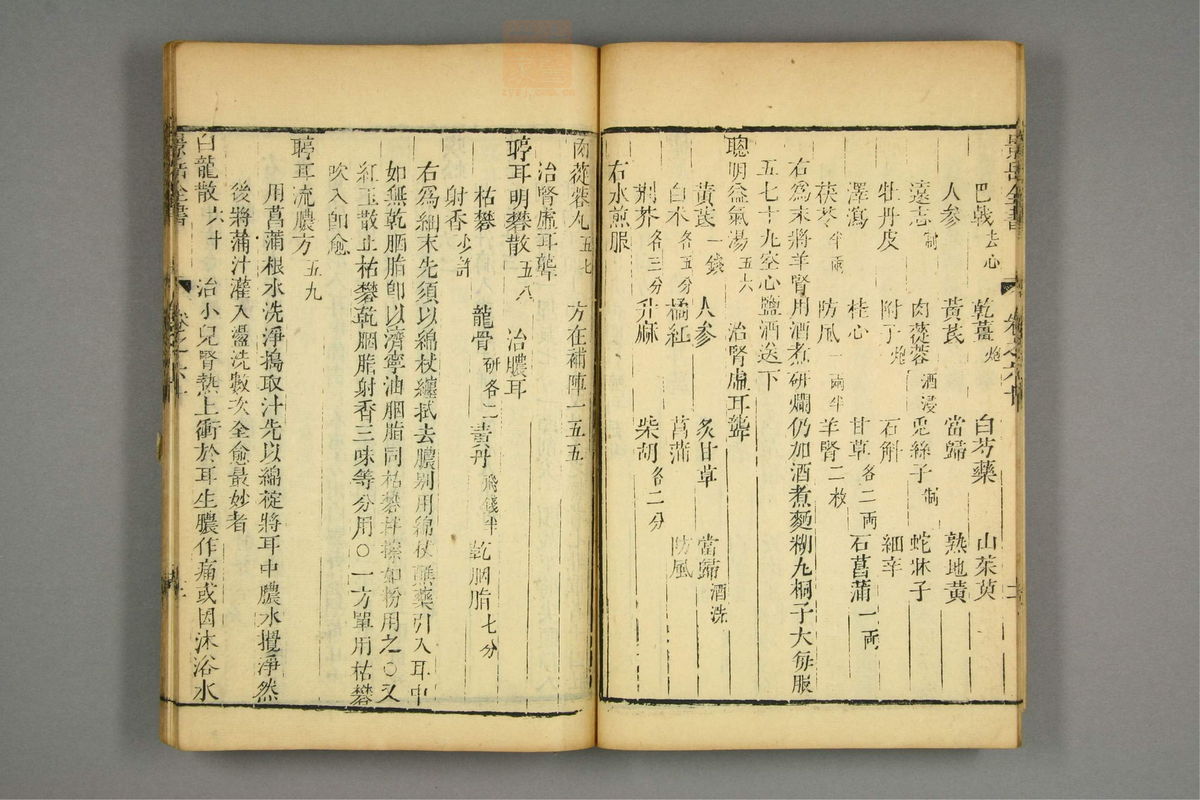 景岳全書 卷之六十
巴戟去心 乾薑炮 白芍藥 山茱萸
人參 黃芪 當歸 熟地黃
遠志制 肉蓯蓉酒浸 兎絲子制 蛇牀子
牡丹皮 附子炮 石斛 細辛
澤瀉 桂心 甘草各二兩 石菖蒲一兩
茯苓半兩 防風一兩半 羊腎二枚
右爲末將羊腎用酒煮研爛仍加酒煮麪糊丸桐子大每服
五七十丸空心鹽酒送下
聰明益氣湯五六 治腎虛耳聾
黃芪一錢 人參 炙甘草 當歸酒洗
白朮各五分 橘紅 菖蒲 防風
荊芥各三分 升麻 柴胡各二分
右水煎服
肉蓯蓉丸五七 方在補陣一五五
治腎虛耳聾
聤耳明礬散五八 治膿耳
枯礬 龍骨研各二 黃丹飛錢半 乾胭脂七分
射香少許
右爲細末先須以綿杖纏拭去膿別用綿杖蘸藥引入耳中
如無乾胭脂卽以濟寧油胭脂同枯礬拌擦如粉用之○又
紅玉散止枯礬乾胭脂射香三味等分用○一方單用枯礬
吹入卽愈
聤耳流膿方五九
用菖蒲根水洗淨搗取汁先以綿梃將耳中膿水攪淨然
後將蒲汁灌入盪洗數次全愈最妙者
白龍散六十 治小兒腎熱上衝於耳生膿作痛或因沐浴水
景岳全書 卷之六十